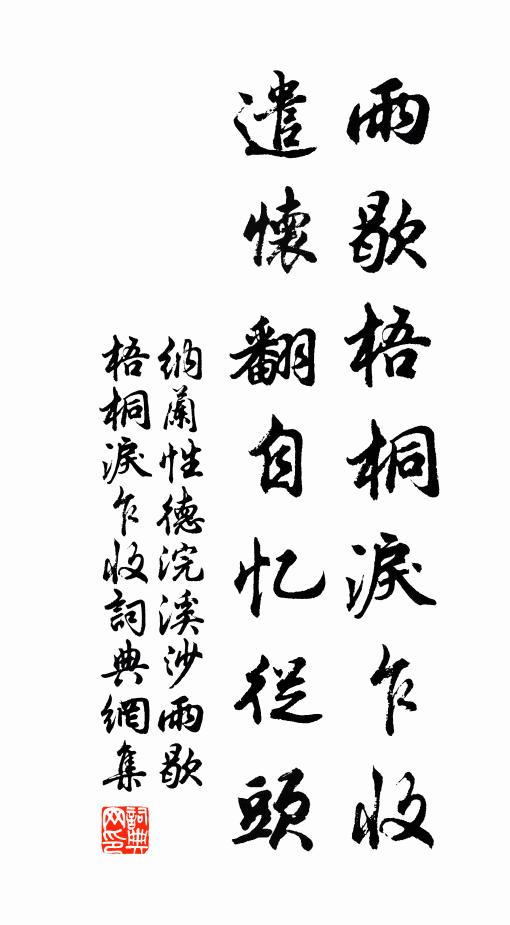 雨歇梧桐淚乍收
遣懷翻自忆從頭
納蘭性德浣溪沙雨歇
梧桐淚乍收詞典網集
詞典
网印